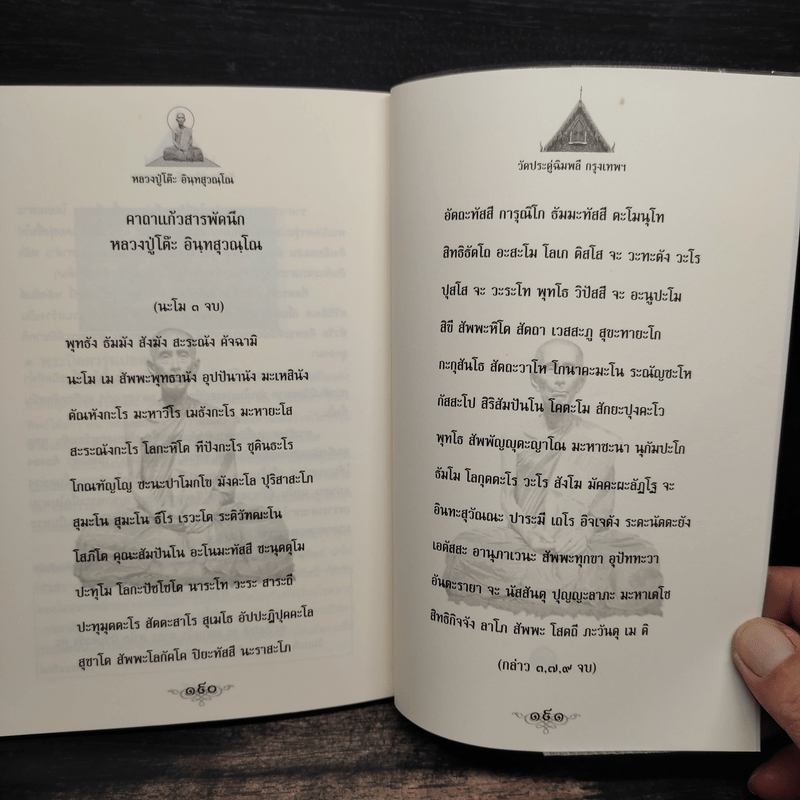 หลวงปู่โต๊ะ อินฺทสุวณฺโณ
คาถาแก้วสารพัดนึก
หลวงปู่โต๊ะ อินฺทสุวณฺโณ
(นะโม ๓ จบ)
พุทธัง ธัมมัง สังฆัง สะระณัง คัจฉามิ
นะโม เม สัพพะพุทธานัง อุปปันนานัง มะเหสินัง
ตัณหังกะโร มะหาวีโร เมธังกะโร มะหายะโส
สะระณังกะโร โลกะหิโต ทีปังกะโร ชุตินธะโร
โกณฑัญโญ ชะนะปาโมกโข มังคะโล ปุริสาสะโภ
สุมะโน สุมะโน ธีโร เรวะโต ระติวัฑฒะโน
โสภิโต คุณะสัมปันโน อะโนมะทัสสี ชะนุตตุโม
ปะทุโม โลกะปัชโชโต นาระโท วะระ สาระถี
ปะทุมุตตะโร สัตตะสาโร สุเมโธ อัปปะฏิปุคคะโล
สุชาโต สัพพะโลกัคโค ปิยะทัสสี นะราสะโภ
๑๙๐
วัดประดู่ฉิมพลี กรุงเทพฯ
อัตถะทัสสี การุณิโก ธัมมะทัสสี ตะโมนุโท
สิทธิธัตโถ อะสะโม โลเก ติสโส จะ วะทะตัง วะโร
ปุสโส จะ วะระโท พุทโธ วิปัสสี จะ อะนูปะโม
สิขี สัพพะหิโต สัตถา เวสสะภู สุขะทายะโก
กะกุสันโธ สัตถะวาโห โกนาคะมะโน ระณัญชะโห
กัสสะโป สิริสัมปันโน โคตะโม สักยะปุงคะโว
พุทโธ สัพพัญญุตะญาโณ มะหาชะนา นุกัมปะโก
ธัมโม โลกุตตะโร วะโร สังโฆ มัคคะผะลัฏโฐ จะ
อินทะสุวัณณะ ปาระมี เถโร อิจเจตัง ระตะนัตตะยัง
เอตัสสะ อานุภาเวนะ สัพพะทุกขา อุปัททะวา
อันตะรายา จะ นัสสันตุ ปุญญะลาภะ มะหาเตโช
สิทธิกิจจัง ลาโภ สัพพะ โสตถี ภะวันตุ เม ติ
(กล่าว ๓,๗,๙ จบ)
๑๙๑